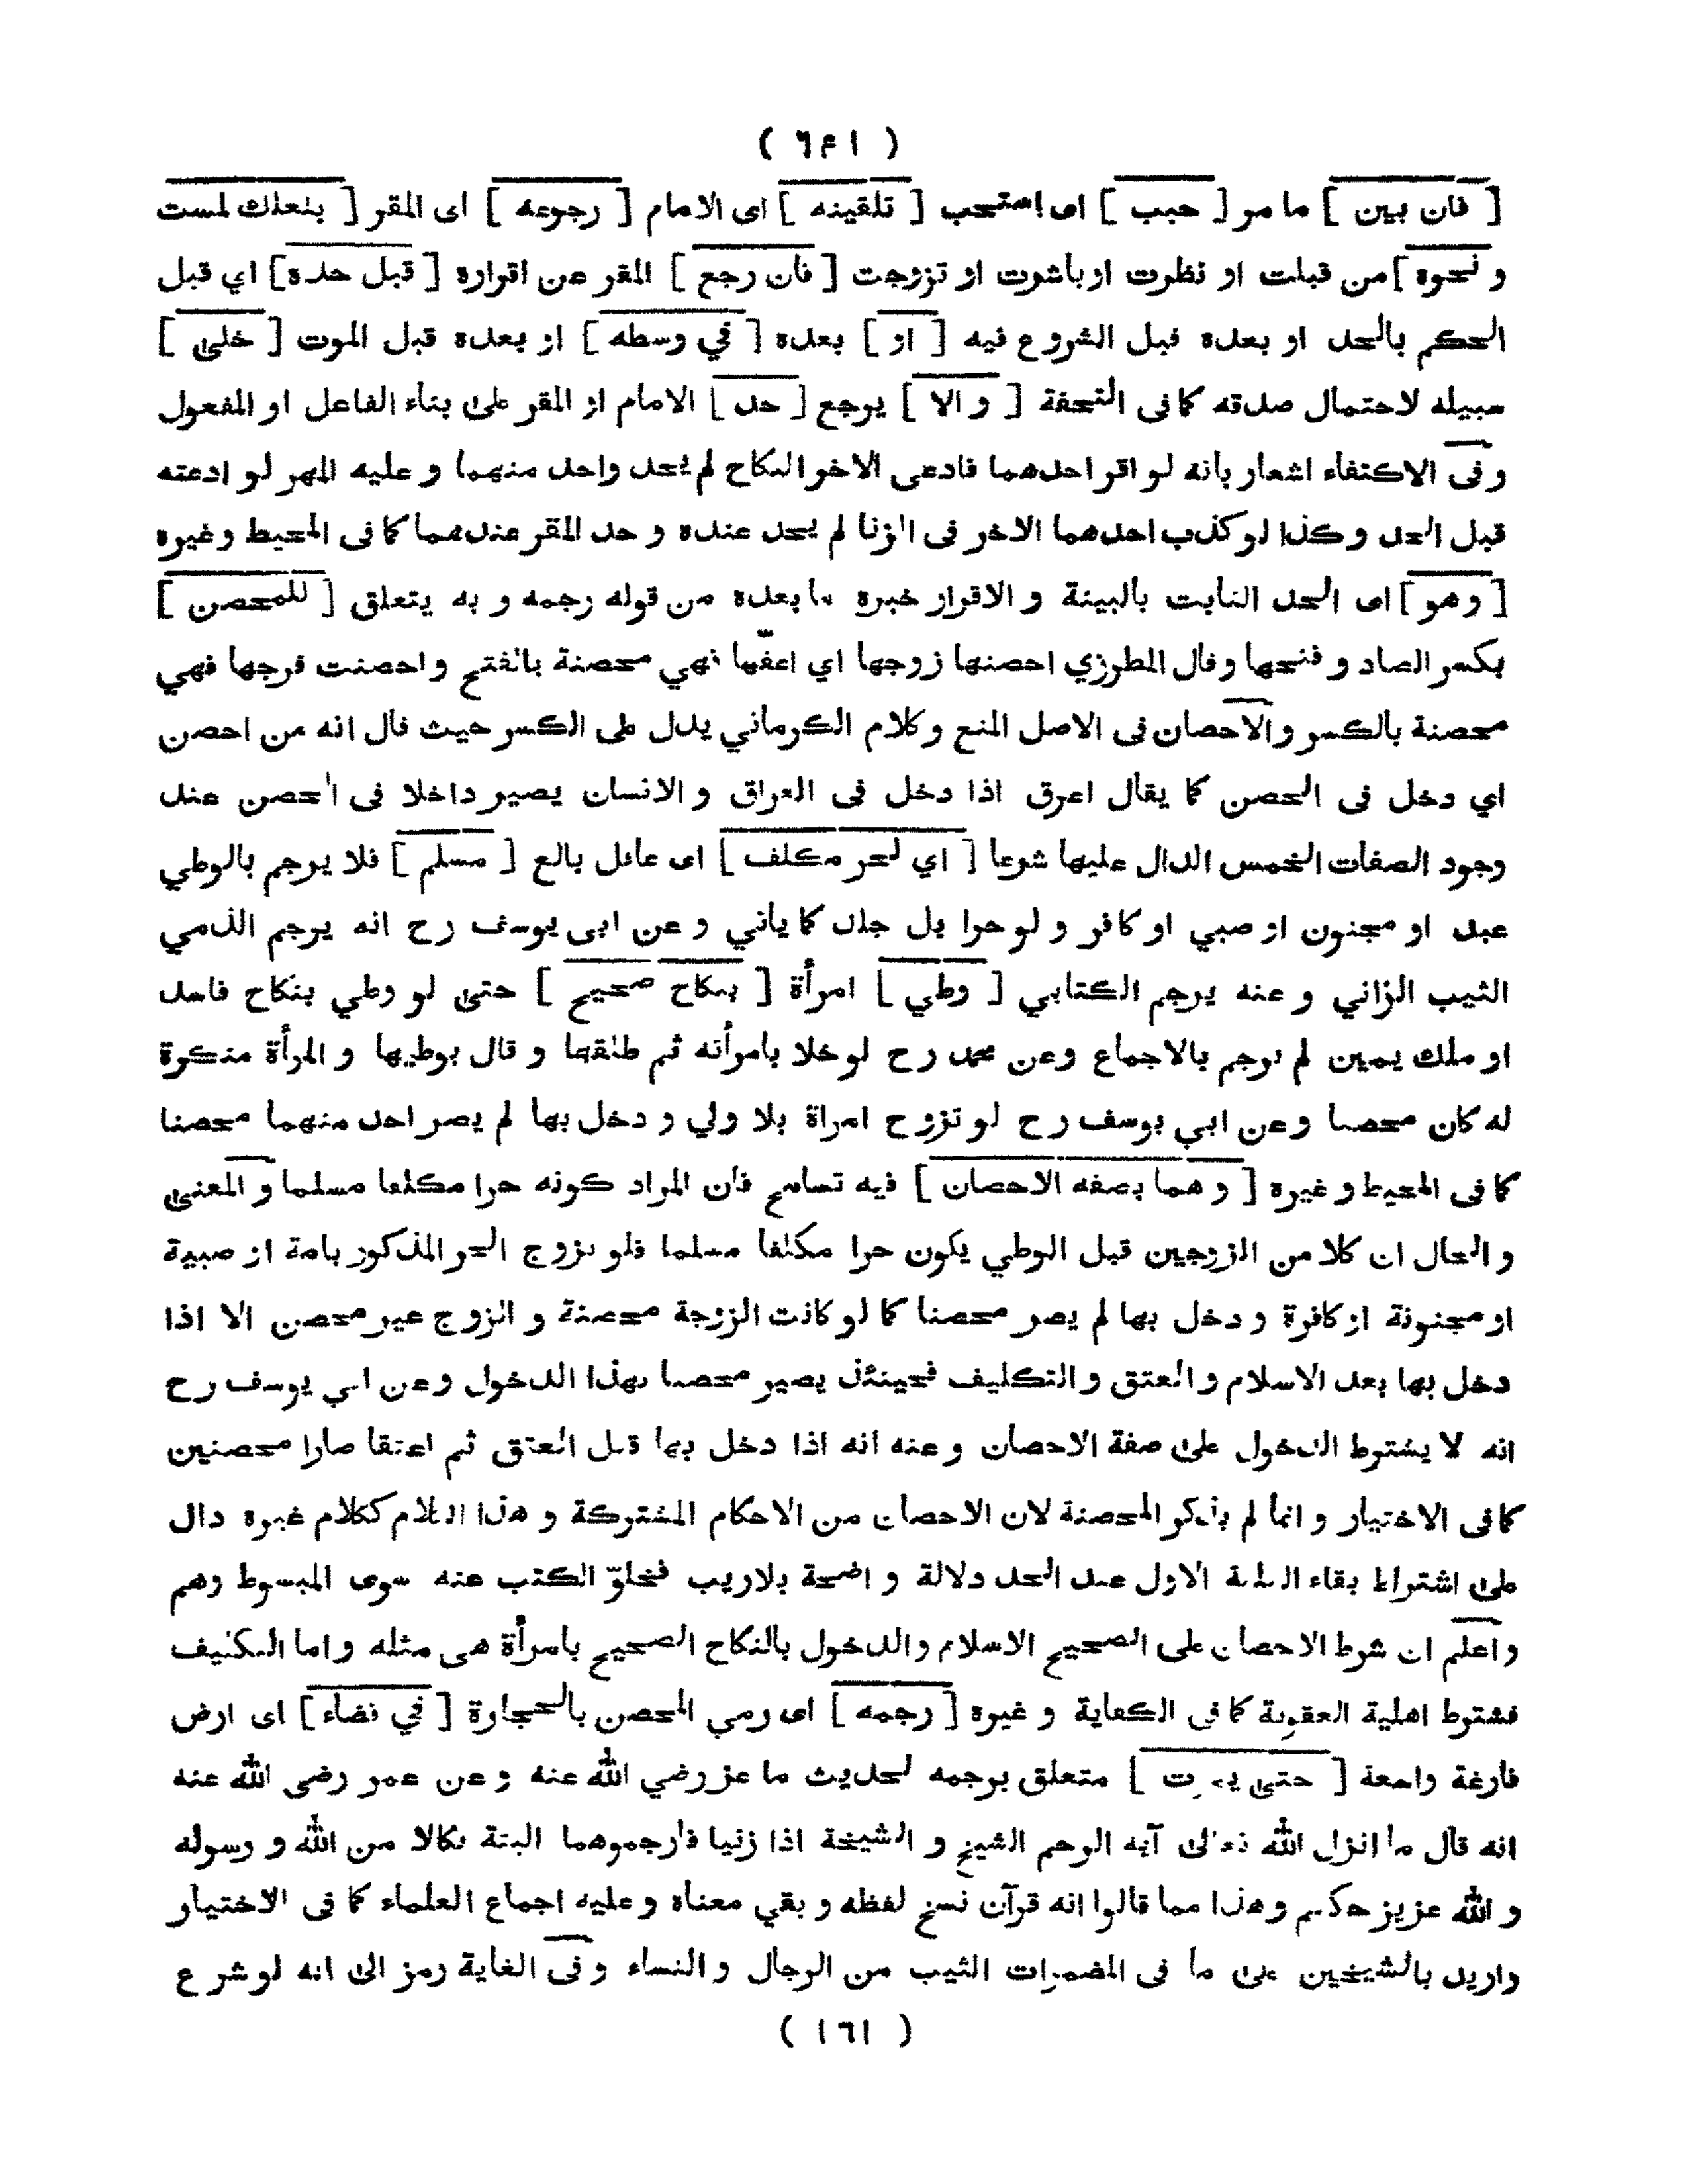 ( ٦٤١ )
[ فان بين ] ما مر [ حبب ] اى استحب [ تلقينه ] اى الامام [ رجوعه ] اى المقر [ بلعلك لمست
و نحوه ] من قبلت او نظرت او باشرت او تزوجت [ فان رجع ] المقر عن اقراره [ قبل حده ] اي قبل
الحكم بالحد او بعده قبل الشروع فيه [ او ] بعده [ في وسطه ] او بعده قبل الموت [ خلى ]
سبيله لاحتمال صدقه كما فى التحفة [ و الا ] يرجع [ حد ] الامام او المقر على بناء الفاعل او المفعول
و فى الاكتفاء اشعار بانه لو اقر احدهما فادعى الاخر النكاح لم يحد واحد منهما و عليه المهر لو ادعته
قبل الحد و كذا لو كذب احدهما الاخر فى الزنا لم يحد عنده و حد المقر عندهما كما فى المحيط و غيره
[ و هو ] اى الحد الثابت بالبينة و الاقرار خبره ما بعده من قوله رجمه و به يتعلق [ للمحصن ]
بكسر الصاد و فتحها و قال المطرزي احصنها زوجها اي اعفّها فهي محصنة بالفتح و احصنت فرجها فهي
محصنة بالكسر و الاحصان فى الاصل المنع و كلام الكرماني يدل على الكسر حيث قال انه من احصن
اي دخل فى الحصن كما يقال اعرق اذا دخل فى العراق و الانسان يصير داخلا فى الحصن عند
وجود الصفات الخمس الدال عليها شرعا [ اي لحر مكلف ] اى عاقل بالغ [ مسلم ] فلا يرجم بالوطي
عبد او مجنون او صبي او كافر و لو حرا بل جلد كما ياتي و عن ابى يوسف رح انه يرجم الذمي
الثيب الزاني و عنه يرجم الكتابي [ وطي ] امرأة [ بنكاح صحيح ] حتى لو وطي بنكاح فاسد
او ملك يمين لم يرجم بالاجماع وعن محمد رح لو خلا بامرأته ثم طلقها و قال بوطيها و المرأة منكرة
له كان محصنا و عن ابي يوسف رح لو تزوج امراة بلا ولي و دخل بها لم يصر احد منهما محصنا
كما فى المحيط و غيره [ و هما بصفة الاحصان ] فيه تسامح فان المراد كونه حرا مكلفا مسلما و المعنى
و الحال ان كلا من الزوجين قبل الوطي يكون حرا مكلفا مسلما فلو تزوج الحر المذكور بامة او صبية
او مجنونة او كافرة و دخل بها لم يصر محصنا كما لو كانت الزوجة محصنة و الزوج غير محصن الا اذا
دخل بها بعد الاسلام و العتق و التكليف فحينئذ يصير محصنا بهذا الدخول و عن ابي يوسف رح
انه لا يشترط الدخول على صفة الاحصان و عنه انه اذا دخل بها قبل العتق ثم اعتقا صارا محصنين
كما فى الاختيار و انما لم يذكر المحصنة لان الاحصان من الاحكام المشتركة و هذا الكلام ككلام غيره دال
على اشتراط بقاء الاول عند الحد دلالة و اضحة بلا ريب فخلوّ الكتب عنه سوى المبسوط وهم
و اعلم ان شرط الاحصان على الصحيح الاسلام و الدخول بالنكاح الصحيح بامرأة هى مثله و اما التكليف
فشرط اهلية العقوبة كما فى الكفاية و غيره [ رجمه ] اى رمي المحصن بالحجارة [ في فضاء ] اى ارض
فارغة واسعة [ حتى يموت ] متعلق برجمه لحديث ما عز رضي الله عنه و عن عمر رضى الله عنه
انه قال ما انزل الله تعالى آية الرجم الشيخ و الشيخة اذا زنيا فارجموهما البتة نكالا من الله و رسوله
و الله عزيز حكيم و هذا مما قالوا انه قرآن نسخ لفظه و بقي معناه و عليه اجماع العلماء كما فى الاختيار
و اريد بالشيخين على ما فى المضمرات الثيب من الرجال و النساء و فى الغاية رمز الى انه لو شرع
( ١٦١ )